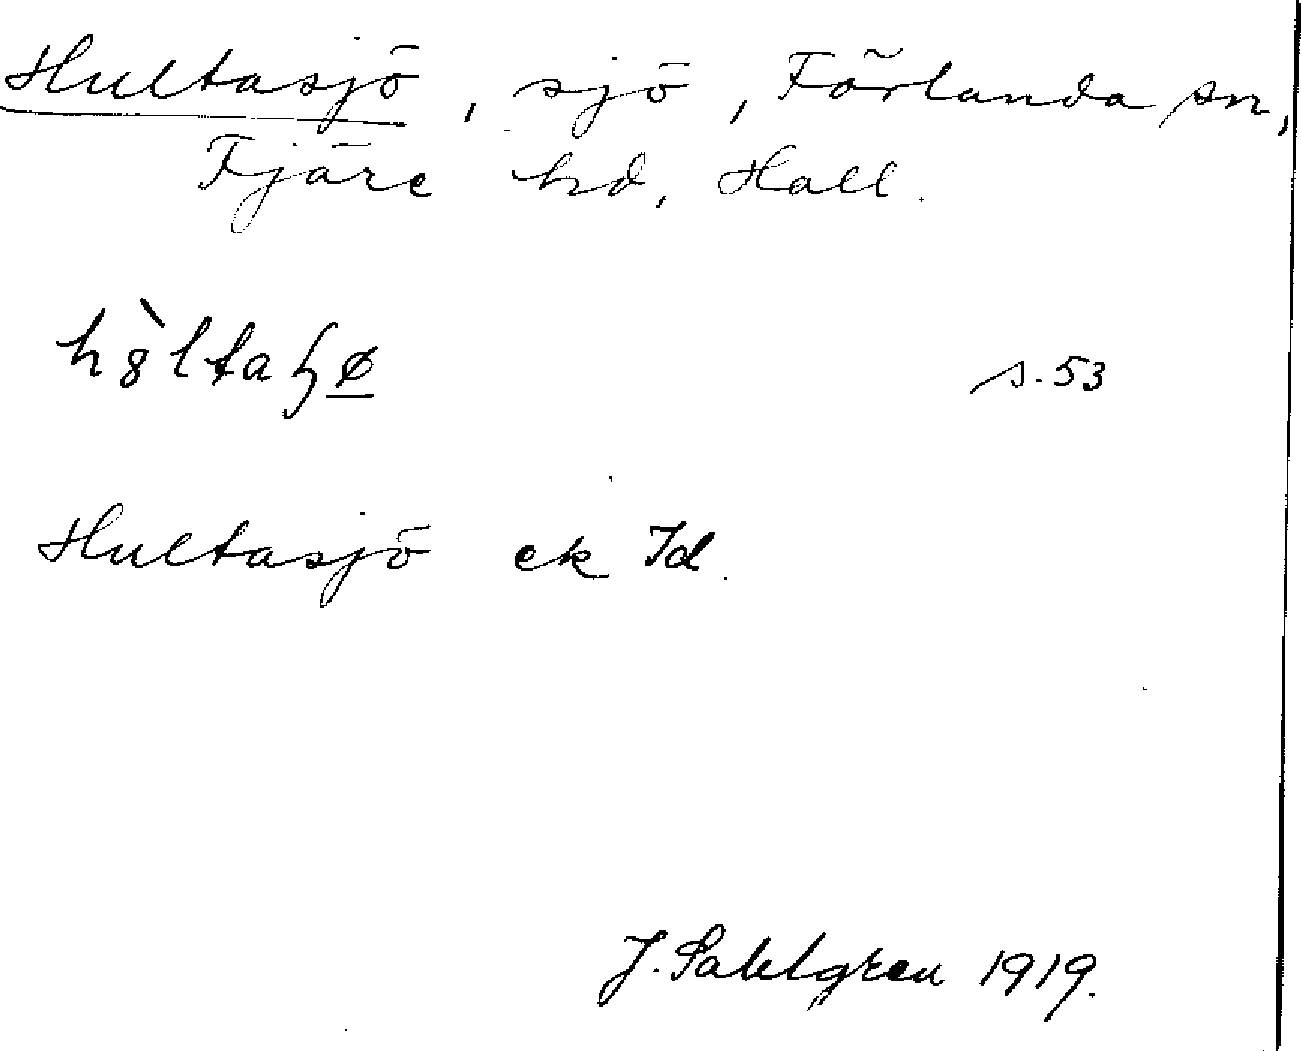 Hultasjö, sjö, Förlanda sn,
Fjäre hd, Hall.
s. 53
Hultasjö ek Id.
J. Sahlgren 1919.